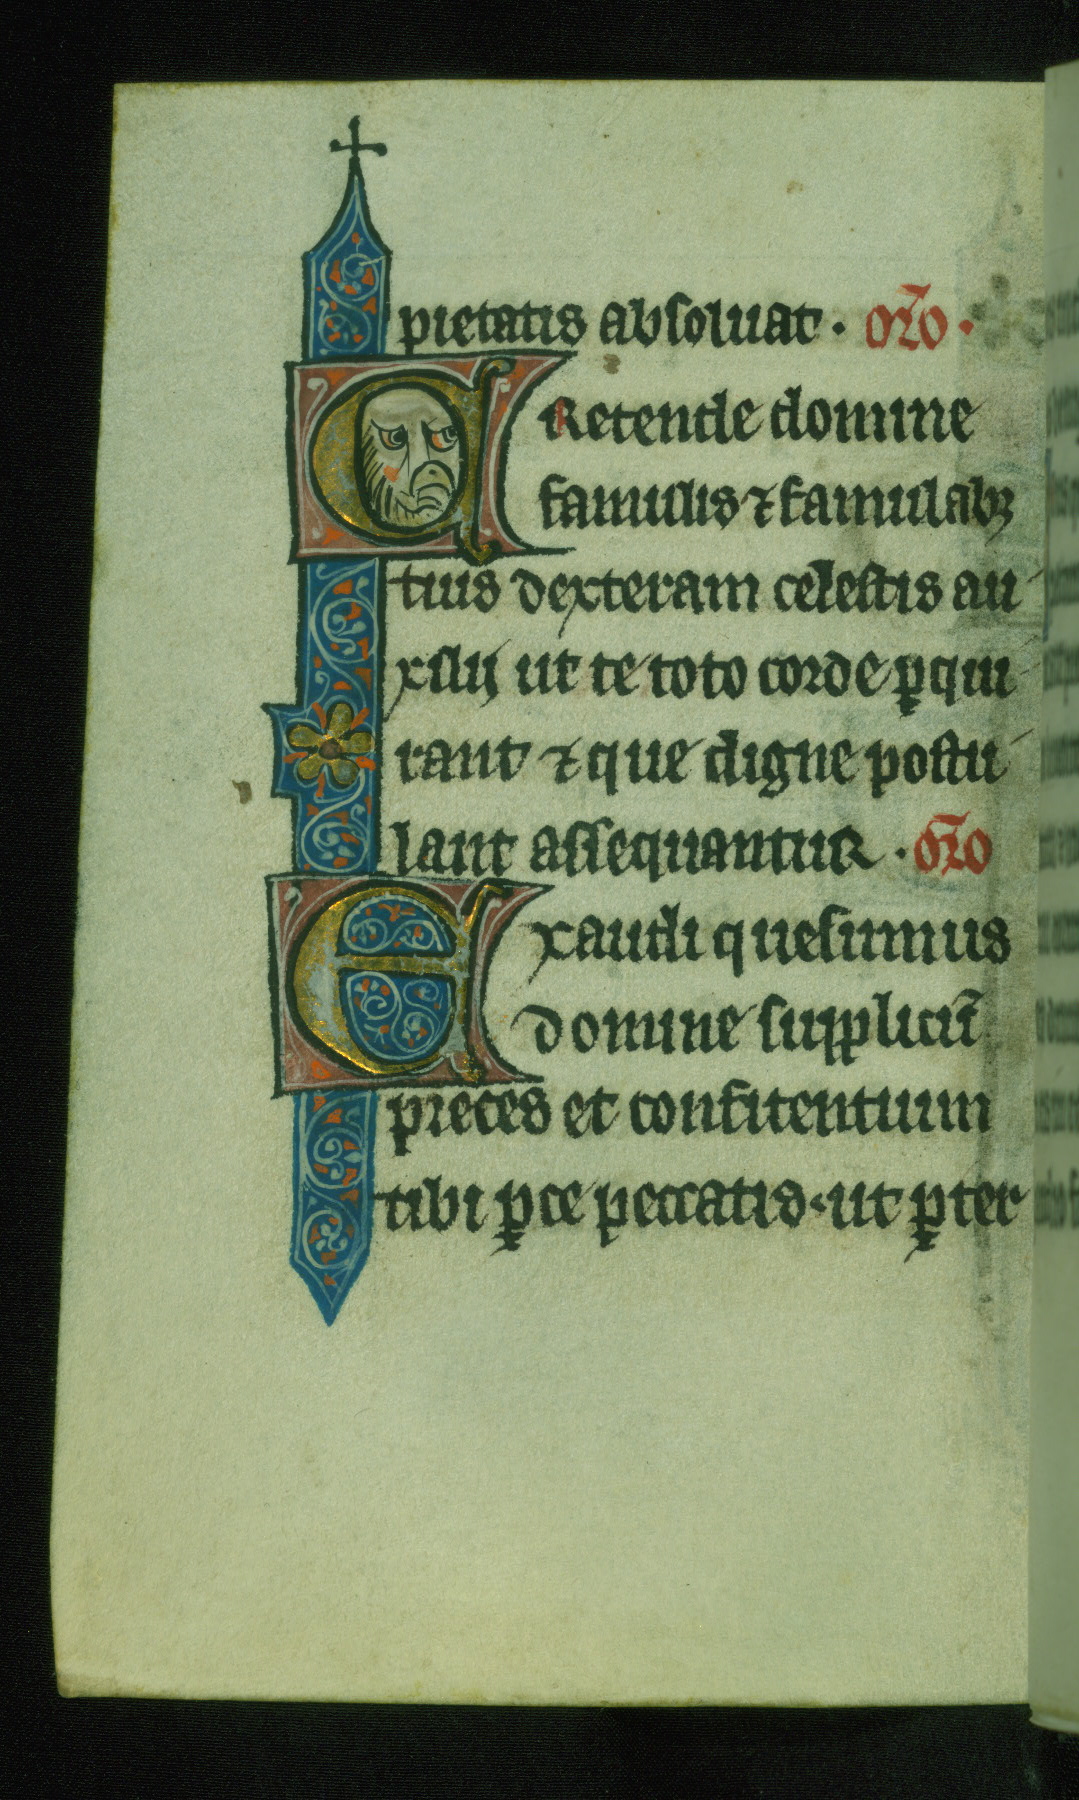 pietatis absoluat · or̄o ·
Retende domine
famulis ⁊ famulabꝫ
tuis dexteram celestis au
xilij ut te toto corde ꝑqui
rant ⁊ que digne postu
lant assequantur · or̄o
Exaudi quesumus
domine suppliciū
preces et confitentium
tibi ꝑce peccatis · ut ꝑter